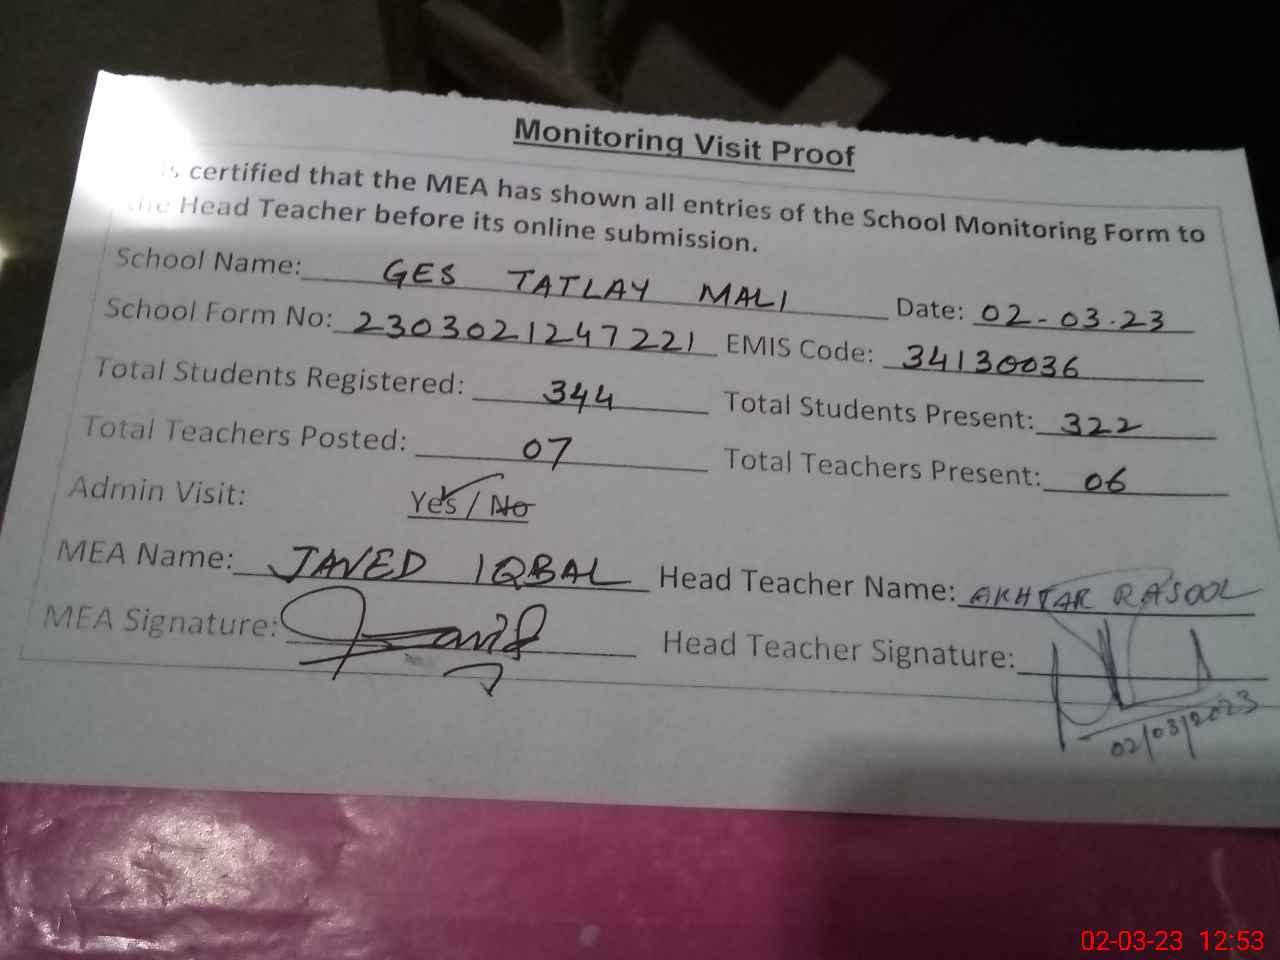 Monitoring Visit Proof
is certified that the MEA has shown all entries of the School Monitoring Form to
the Head Teacher before its online submission.
School Name: GES TATLAY MALI Date: 02-03.23
School Form No: 2303021247221 EMIS Code: 34130036
Total Students Registered: 344 Total Students Present: 322
Total Teachers Posted: 07 Total Teachers Present: 06
Admin Visit: Yes / No
MEA Name: JAVED IQBAL Head Teacher Name: AKHTAR RASOOL
MEA Signature: Head Teacher Signature:
02/03/2023
02-03-23 12:53